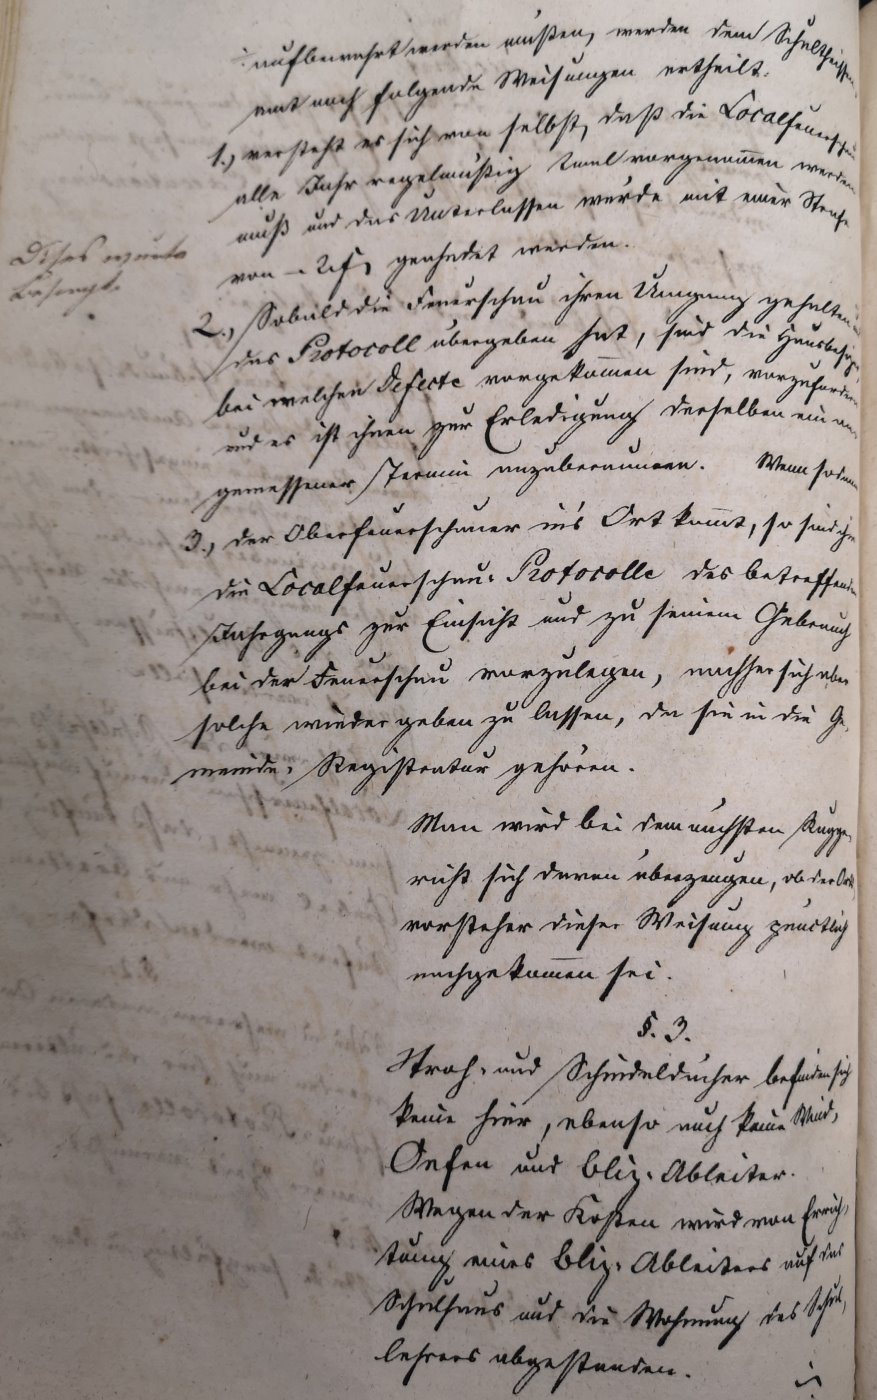 aufbewahrt werden müßen, werden dem Schultheißen
amt noch folgende Weisungen ertheilt.
1., versteht es sich von selbst, daß die Localfeuerschau
alle Jahr regelmäßig 2mal vorgenommen werden
muß und das Unterlassen würde mit einer Strafe
von geahndet werden.
2., Sobald die Feuerschau ihren Umgang gehalten
das Protocoll übergeben hat, sind die Hausbesizer,
bei welchen Defecte vorgekommen sind, vorzufordern
und es ist ihnen zur Erledigung derselben ein an
gemessener Termin anzuberaumen. Wenn sodann
3., der Oberfeuerschauer in's Ort kommt, so sind ihm
die Localfeuerschau-Protocolle des betreffenden
Jahrgangs zur Einsicht und zu seinem Gebrauch
bei der Feuerschau vorzulegen, nachher sich aber
solche wieder geben zu lassen, da sie in die Ge-
meinde-Registratur gehören.
Man wird bei dem nächsten Rugge-
richt sich davon überzeugen, ob der Orts
vorsteher dieser Weisung pünctlich
nachgekommen sei.
§. 3.
Stroh- und Schindeldächer befinden sich
keine hier, ebenso auch keine Wind-
Oefen und Bliz-Ableiter.
Wegen der Kosten wird von Errich-
tung eines Bliz-Ableiters auf das
Schulhaus und die Wohnung des Schul-
lehrers abgestanden.